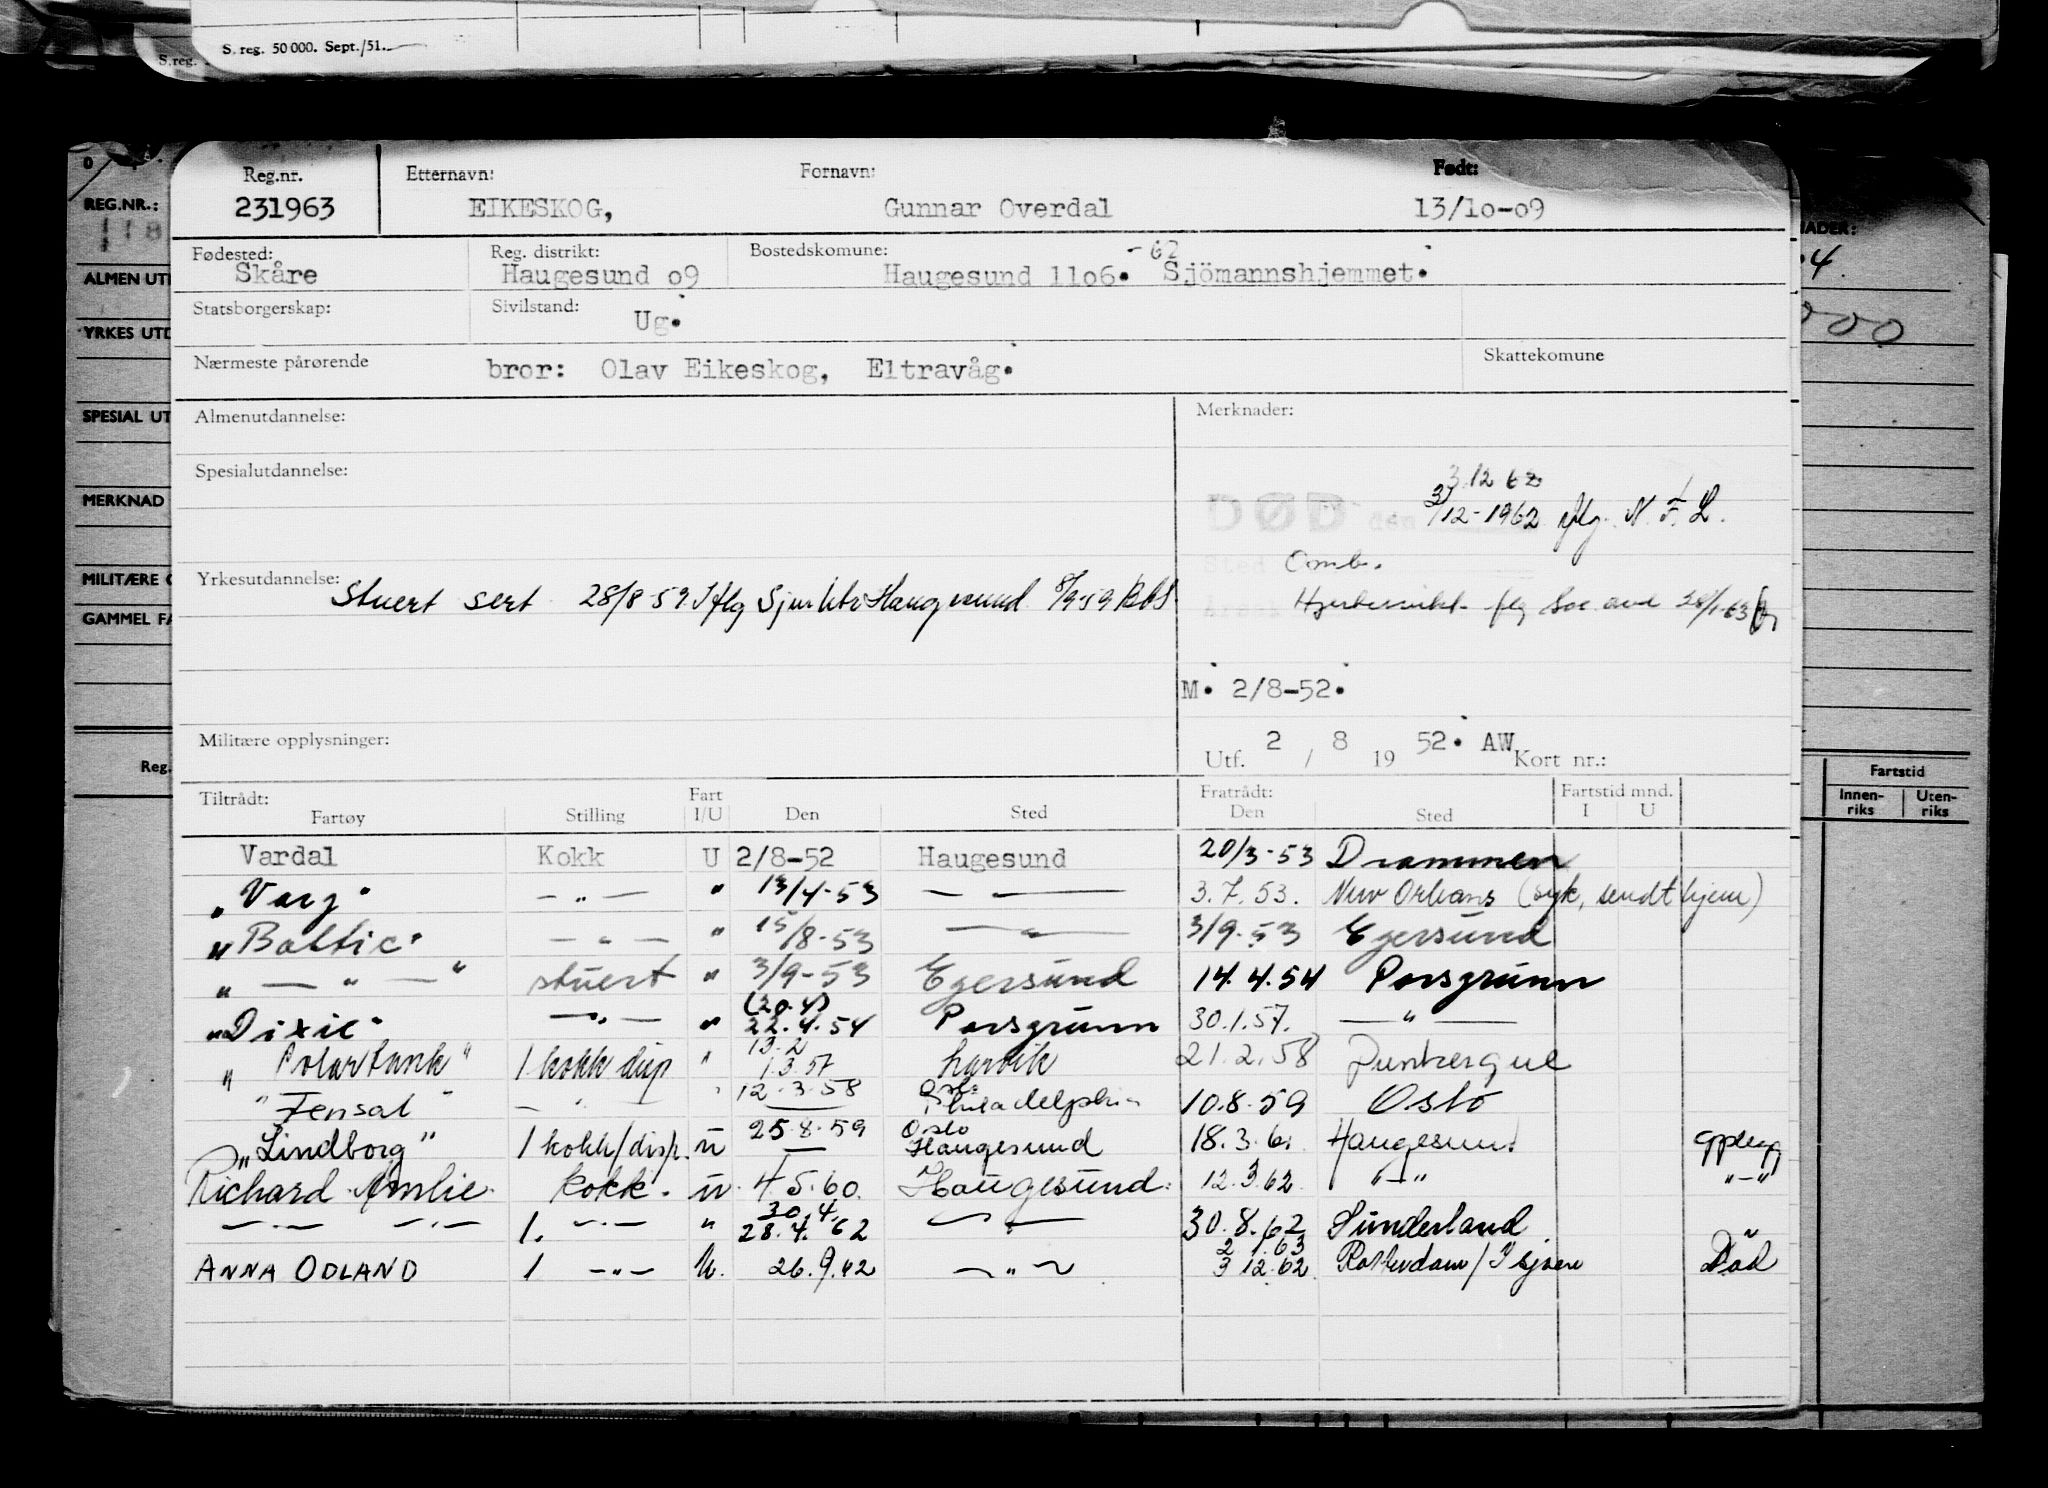 S. reg. 50 000. Sept./51.
S.reg.
Reg.nr. Etternavn: Fornavn: Født:
231963 EIKESKOG, Gunnar Overdal 13/1o-o9
REG.NR.:
118
Fødested: Reg. distrikt: Bostedskomune: -62
Skåre Haugesund o9 Haugesund 11o6. Sjömannshjemmet.
ALMEN UT
Statsborgerskap: Sivilstand: Ug.
YRKES UTD 000
Nærmeste pårørende bror: Olav Eikeskog, Eltravåg. Skattekomune
SPESIAL UT
Almenutdannelse: Merknader:
Spesialutdannelse: 3.12 62
MERKNAD
DØD den 3/12-1962 iflg. N.F.L.
Sted Omb.
MILITÆRE
Yrkesutdannelse: Stuert sert 28/8-59 Iflg Sjm ktr Haugesund 8/9-59
Hjertesvikt flg Soc avd 28/1-63
GAMMEL FA
M. 2/8-52.
Militære opplysninger: Utf. 2 / 8 19 52. AW Kort nr.:
Reg.
Tiltrådt: Fart Fratrådt: Fartstid mnd.
Fartøy Stilling I/U Den Sted Den Sted I U
Fartstid
Innen-riks Uten-riks
Vardal Kokk U 2/8-52 Haugesund 20/3-53 Drammen
"Varg" — " — " 13/4-53 — — 3.7.53. New Orleans (syk, sendt hjem)
"Baltic" — " — " 15/8-53 — " — 3/9-53 Egersund
" — " — " stuert " 3/9-53 Egersund 14.4.54 Porsgrunn
(20.4)
"Dixie" — " — " 22.4.54 Porsgrunn 30.1.57. — " —
13.2
"Polartank" 1 kokk disp " 1.3.57 Narvik 21.2.58 Dunkerque
Oslo
"Fensal" — " — " 12.3.58 Philadelphia 10.8.59 Oslo
Oslo
"Lindborg" 1 kokk/disp. u 25.8.59 Haugesund 18.3.6 Haugesund
Richard Amlie kokk. u. 4.5.60. Haugesund. 12.3.62 " — "  " — "
30.4.
— " — — " — 1. — " — " 28.4.62 — — 30.8.62 Sunderland
2 1.63
ANNA ODLAND 1 — " — U. 26.9.62 — " — 3 12.62 Rotterdam / I sjøen Död